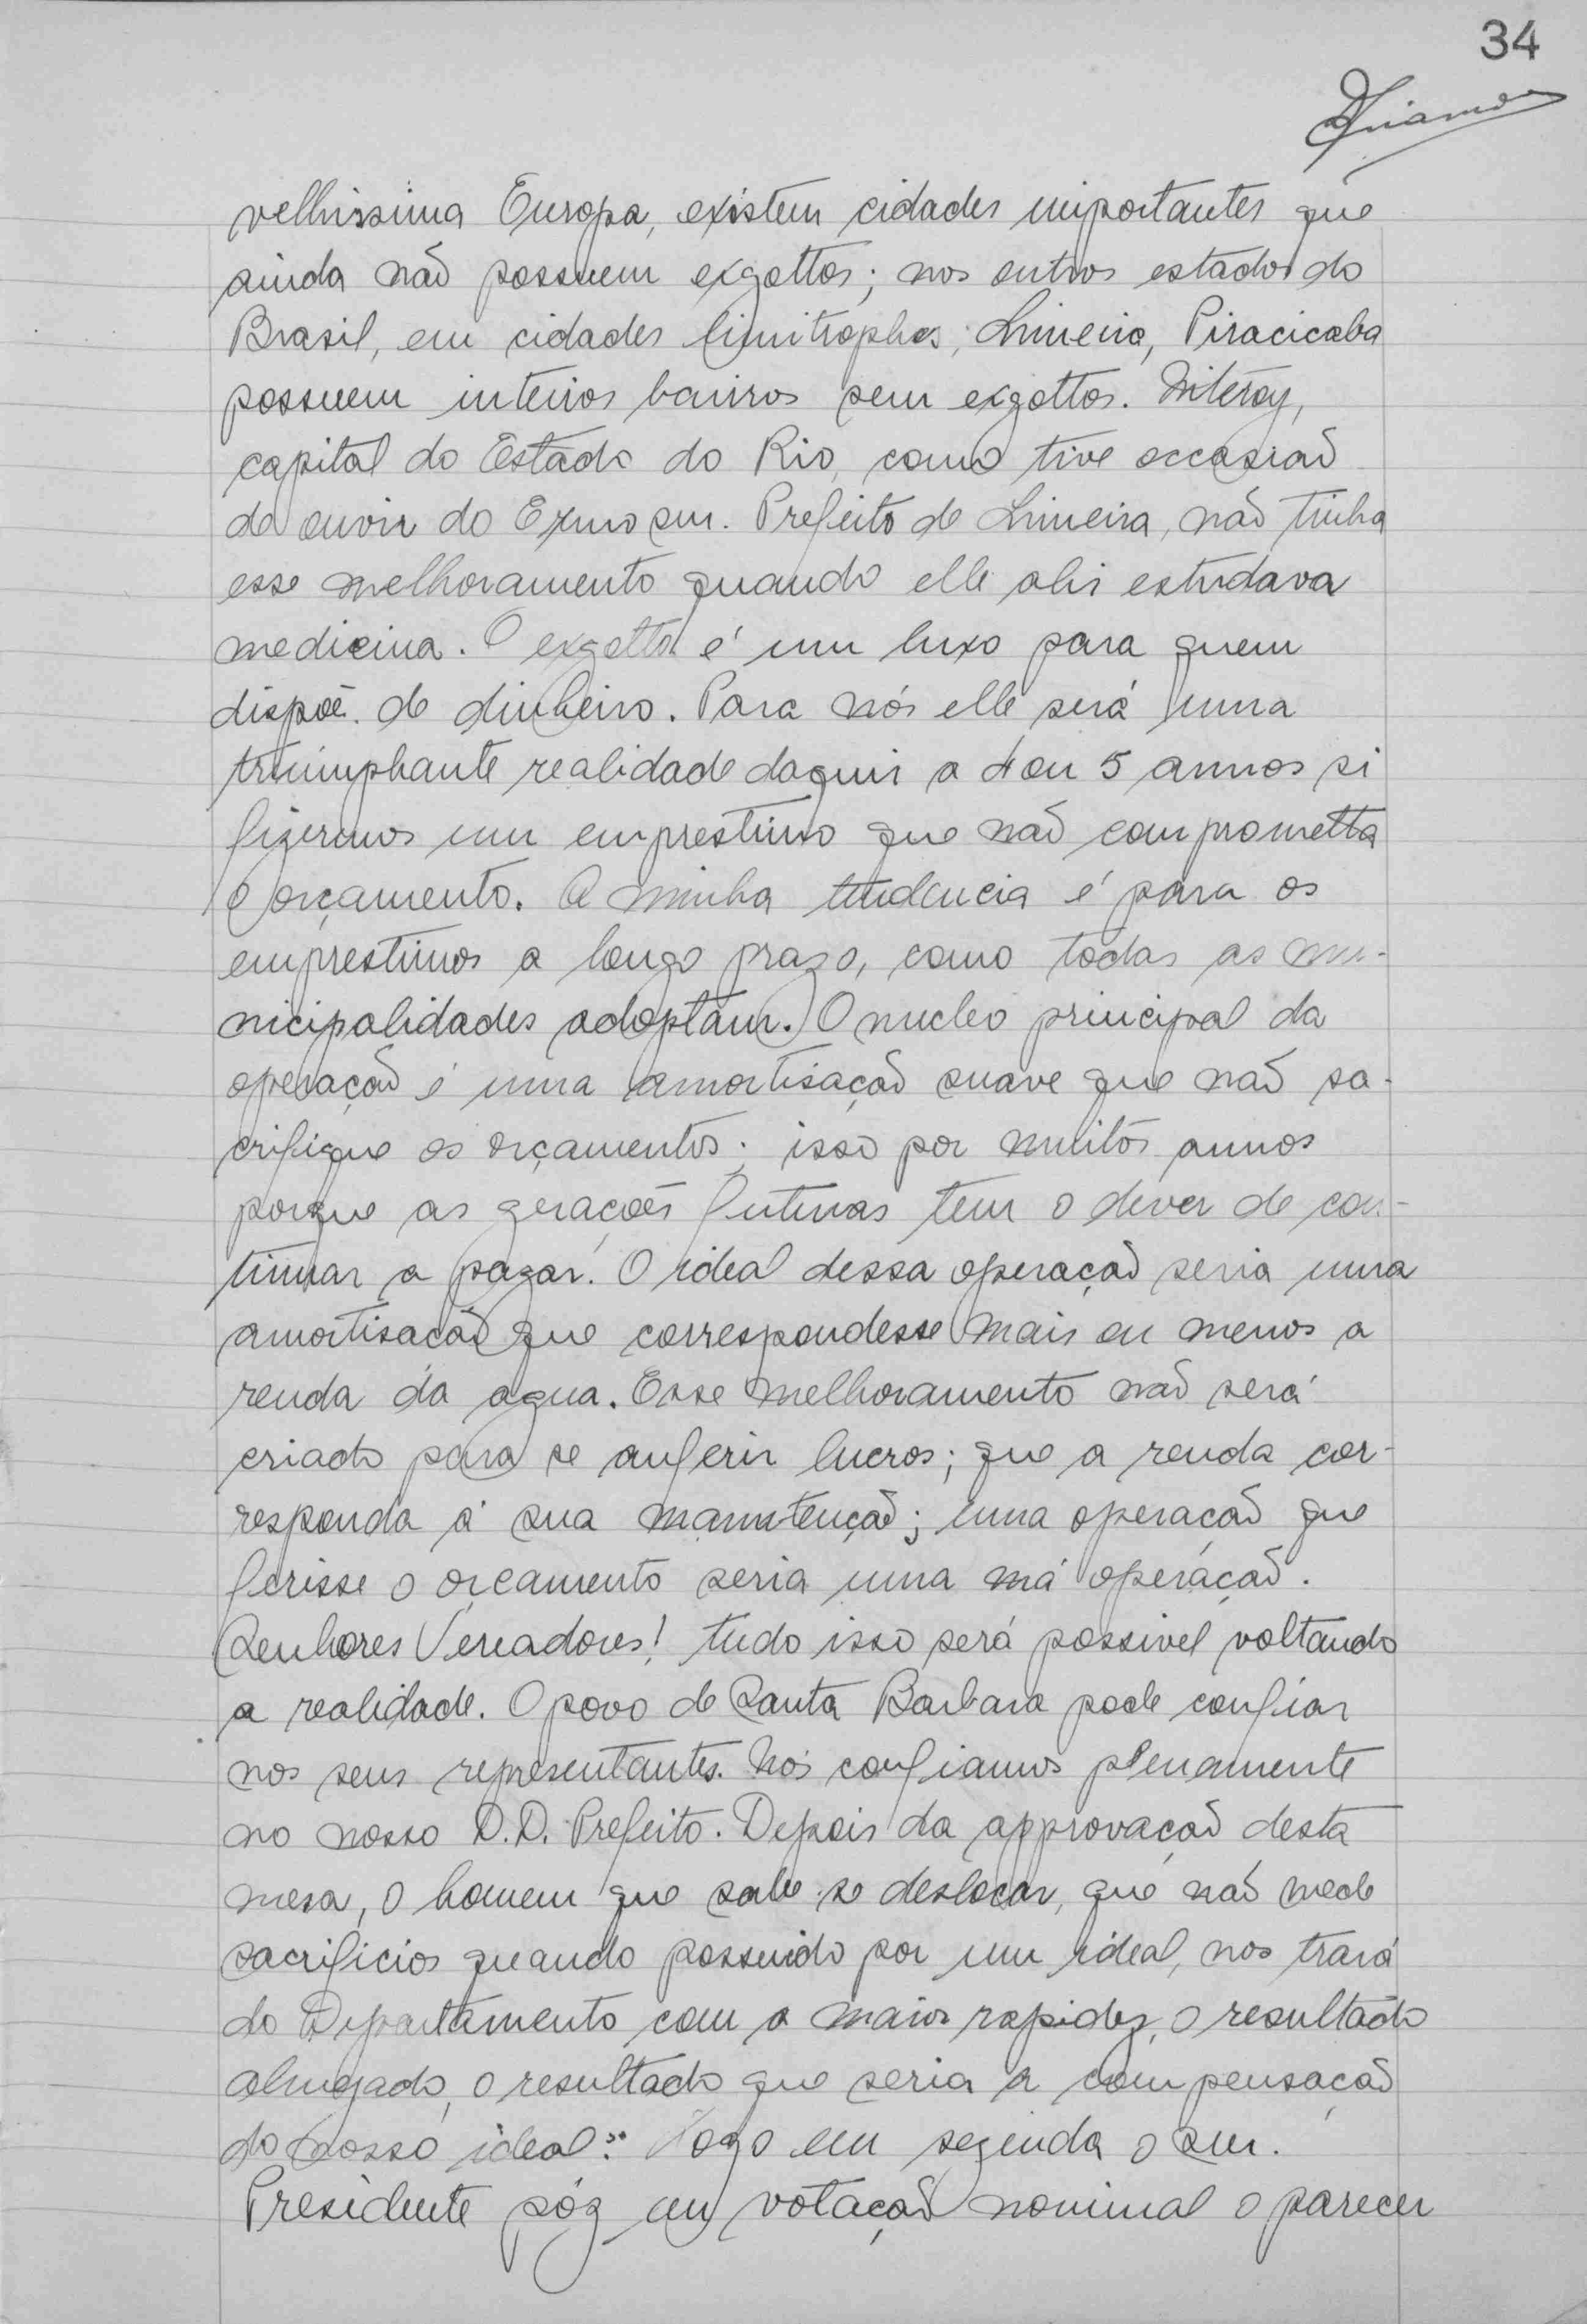 34
velhissima Europa, existem cidades importantes que
ainda não possuem exgottos; nos outros estados do
Brasil, em cidades limitrophes, Limeira, Piracicaba
possuem inteiros bairros sem exgottos. Niteroy,
capital do Estado do Rio, como tive occasião
de ouvir do Exmo snr. Prefeito de Limeira, não tinha
esse melhoramento quando elle ahi estudava
medicina. O exgotto é um luxo para quem
dispõe de dinheiro. Para nós elle será uma
triumphante realidade daqui a 4 ou 5 annos si
fizermos um emprestimo que não comprometta
o orçamento. A minha tendencia é para os
emprestimos a longo praso, como todas as mu-
nicipalidades adoptam. O nucleo principal da
operação é uma amortisação suave que não sa-
crifique os orçamentos; isso por muitos annos
porque as gerações futuras tem o dever de con-
tinuar a pagar. O ideal dessa operação seria uma
amortisação que correspondesse mais ou menos a
renda da agua. Esse melhoramento não será
criado para se auferir lucros; que a renda cor-
responda á sua manutenção; uma operação que
ferisse o orçamento seria uma má operação.
Senhores Vereadores! tudo isso será possivel voltando
a realidade. O povo de Santa Barbara pode confiar
nos seus representantes. Nós confiamos plenamente
no nosso D.D. Prefeito. Depois da approvação desta
mesa, o homem que sabe se deslocar, que não mede
sacrificios quando possuido por um ideal, nos trará
do Departamento com a maior rapidez, o resultado
almejado, o resultado que seria a compensação
do nosso ideal." Logo em seguida o snr.
Presidente pôz em votação nominal o parecer